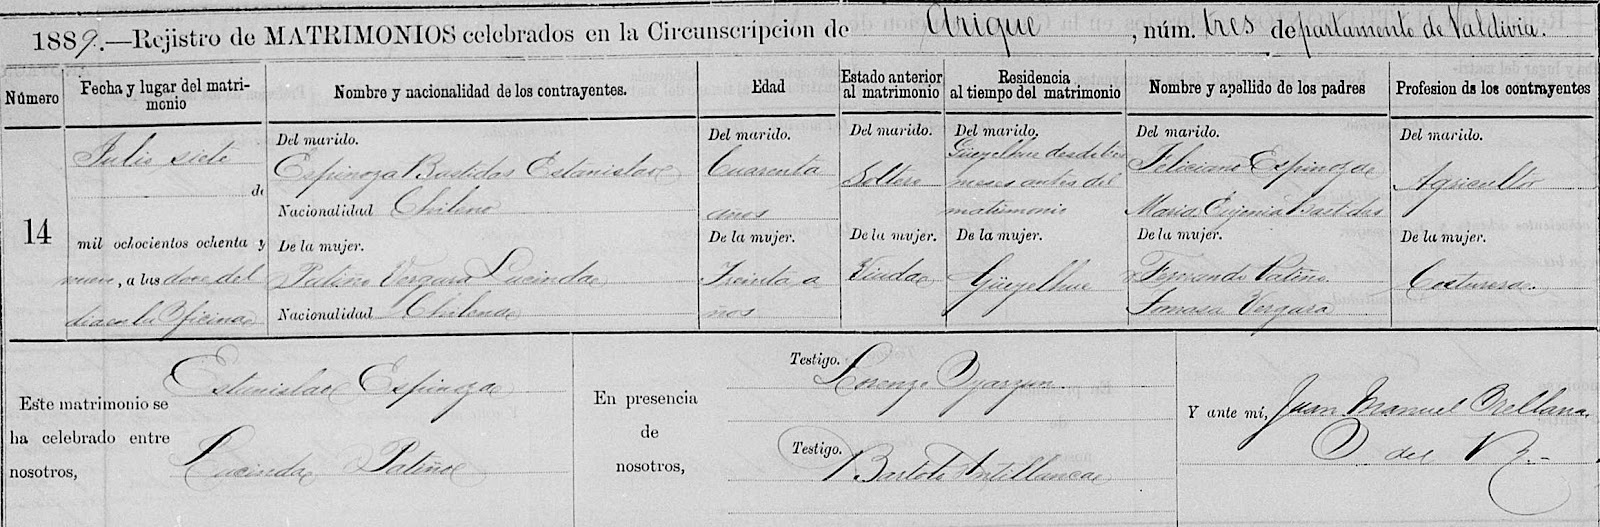 1889.—Rejistro de MATRIMONIOS celebrados en la Circunscripcion de Arique, núm. tres departamento de Valdivia.
Número
Fecha y lugar del matri-
monio
Nombre y nacionalidad de los contrayentes.
Edad
Estado anterior
al matrimonio
Residencia
al tiempo del matrimonio
Nombre y apellido de los padres
Profesion de los contrayentes
14
Julio siete
de
mil ochocientos ochenta y
nueve, a las doce del
dia en la Oficina
Del marido.
Espinoza Bastidas Estanislao
Nacionalidad Chileno
De la mujer.
Patiño Vergara Lucinda
Nacionalidad Chilena
Del marido.
Cuarenta
años
De la mujer.
Treinta a
ños
Del marido.
Soltero
De la mujer.
Viuda
Del marido.
Güeyelhue desde tres
meses antes del
matrimonio
De la mujer.
Güeyelhue
Del marido.
Feliciano Espinoza
Maria Eujenia Bastidas
De la mujer.
Fernando Patiño
Tomasa Vergara
Del marido.
Agricultor
De la mujer.
Costurera.
Este matrimonio se
ha celebrado entre
nosotros,
Estanislao Espinoza
Lucinda Patiño
En presencia
de
nosotros,
Testigo.
Lorenzo Oyarzun
Testigo.
Bartolo Antillanca
Y ante mí, Juan Manuel Orellana
O del R.